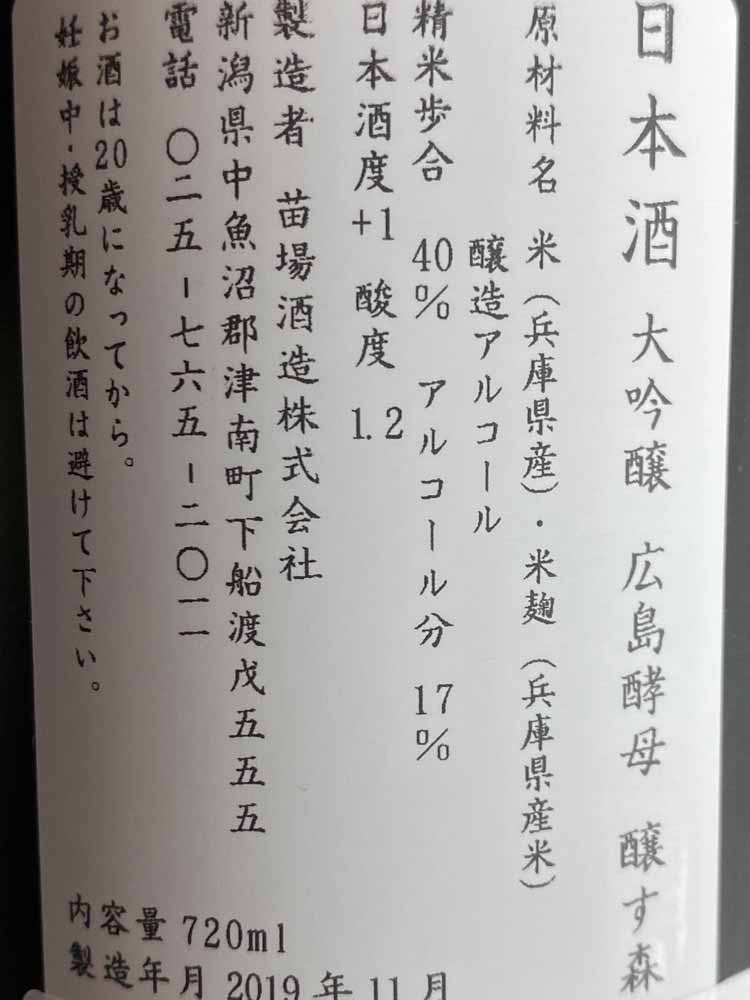 日本酒 大吟醸 広島酵母 醸す森
原材料名 米（兵庫県産）・米麹（兵庫県産米）
醸造アルコール
精米歩合 40% アルコール分 17%
日本酒度+1 酸度 1.2
製造者 苗場酒造株式会社
新潟県中魚沼郡津南町下船渡戊五五五
電話 〇二五-七六五-二〇一一
お酒は20歳になってから。
妊娠中・授乳期の飲酒は避けて下さい。
内容量 720ml
製造年月 2019年11月